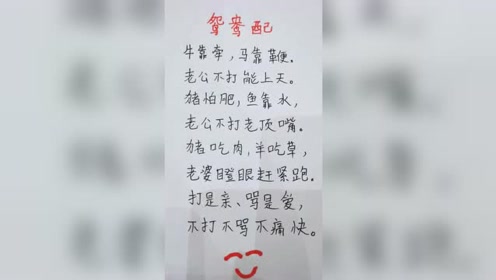 鸳鸯配
牛靠牵,马靠鞭.
老公不打能上天。
猪怕肥,鱼靠水,
老公不打老顶嘴。
猪吃肉,羊吃草,
老婆瞪眼赶紧跑.
打是亲、骂是爱,
不打不骂不痛快。